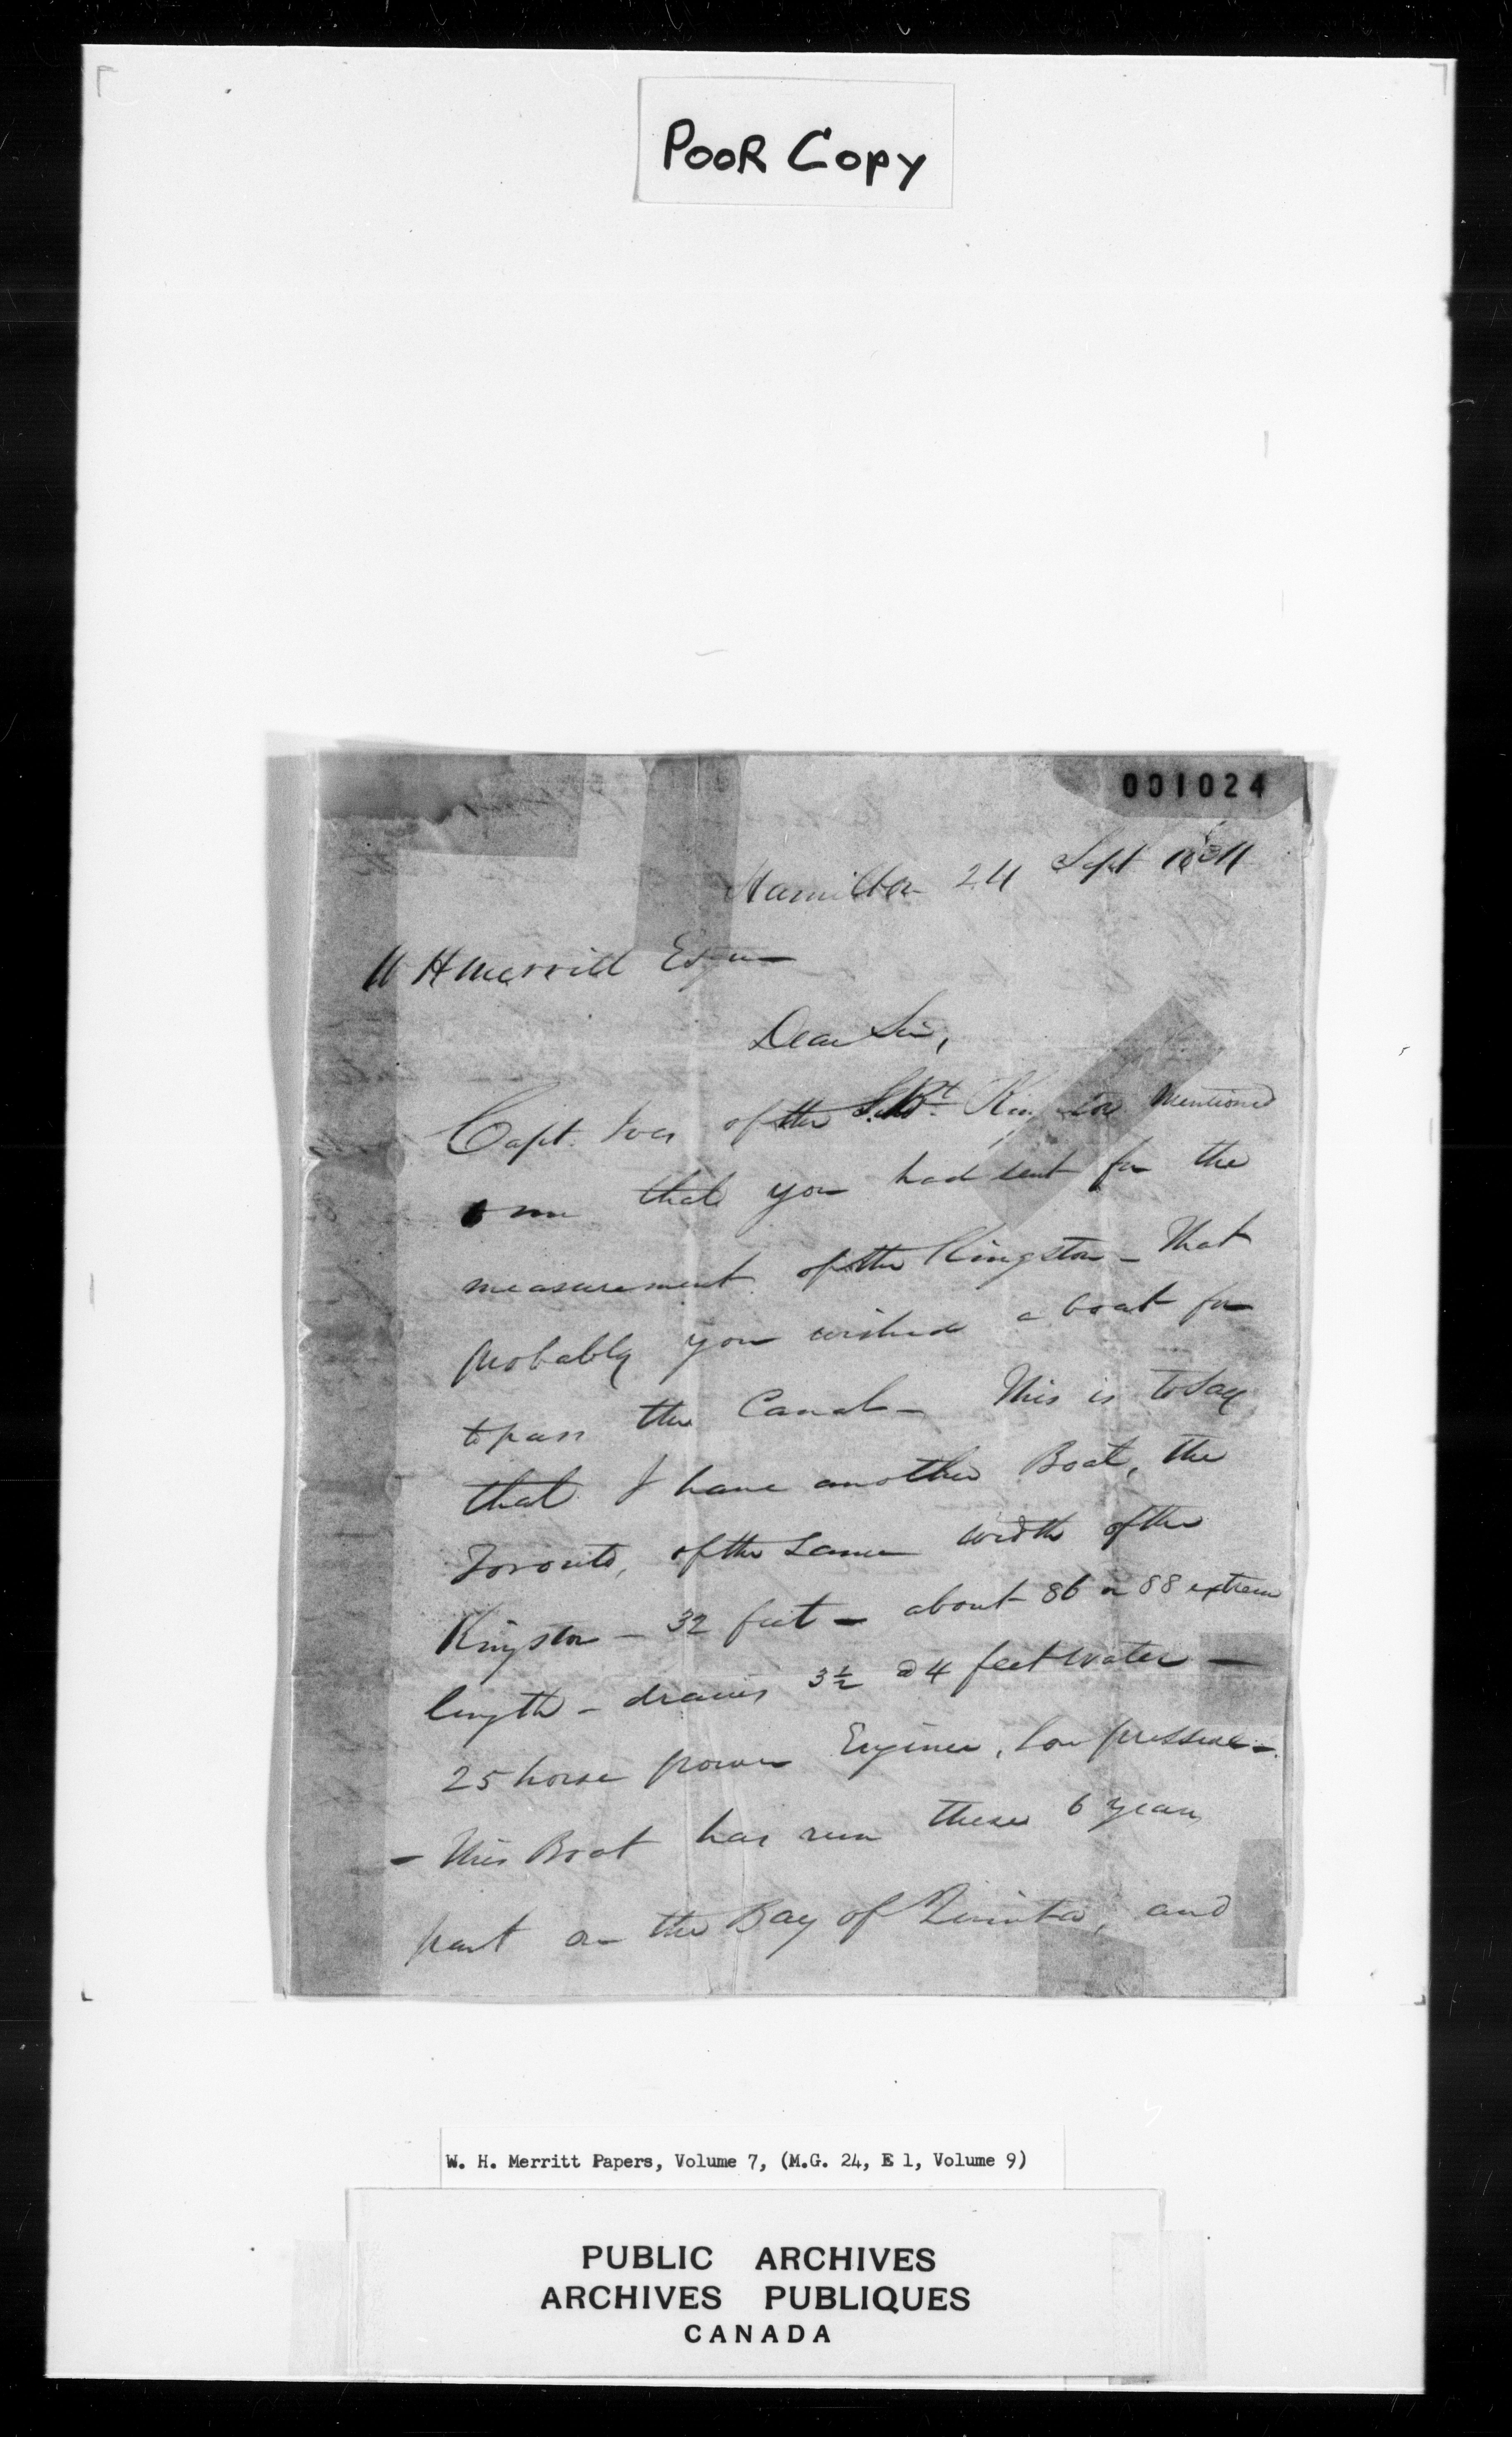 POOR COPY
001024
Hamilton 24 Sept
W H Merritt Esqr
Dear Sir,
Capt. Ives of the S. Bt. Kingston Mentioned
me that you had sent for the
measurement of the Kingston - That
probably you wished a boat for
to pass the Canal - This is to say
that I have another Boat, the
Toronto, of the same width of the
Kingston - 32 feet - about 86 or 88 extreme
length - draws 3½ a 4 feet water -
25 horse power Engine, low pressure -
- This Boat has run these 6 years
part on the Bay of Quinta, and
W. H. Merritt Papers, Volume 7, (M.G. 24, E 1, Volume 9)
PUBLIC ARCHIVES
ARCHIVES PUBLIQUES
CANADA